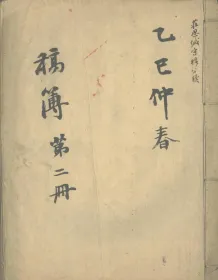 乙巳仲春
稿簿 第二册